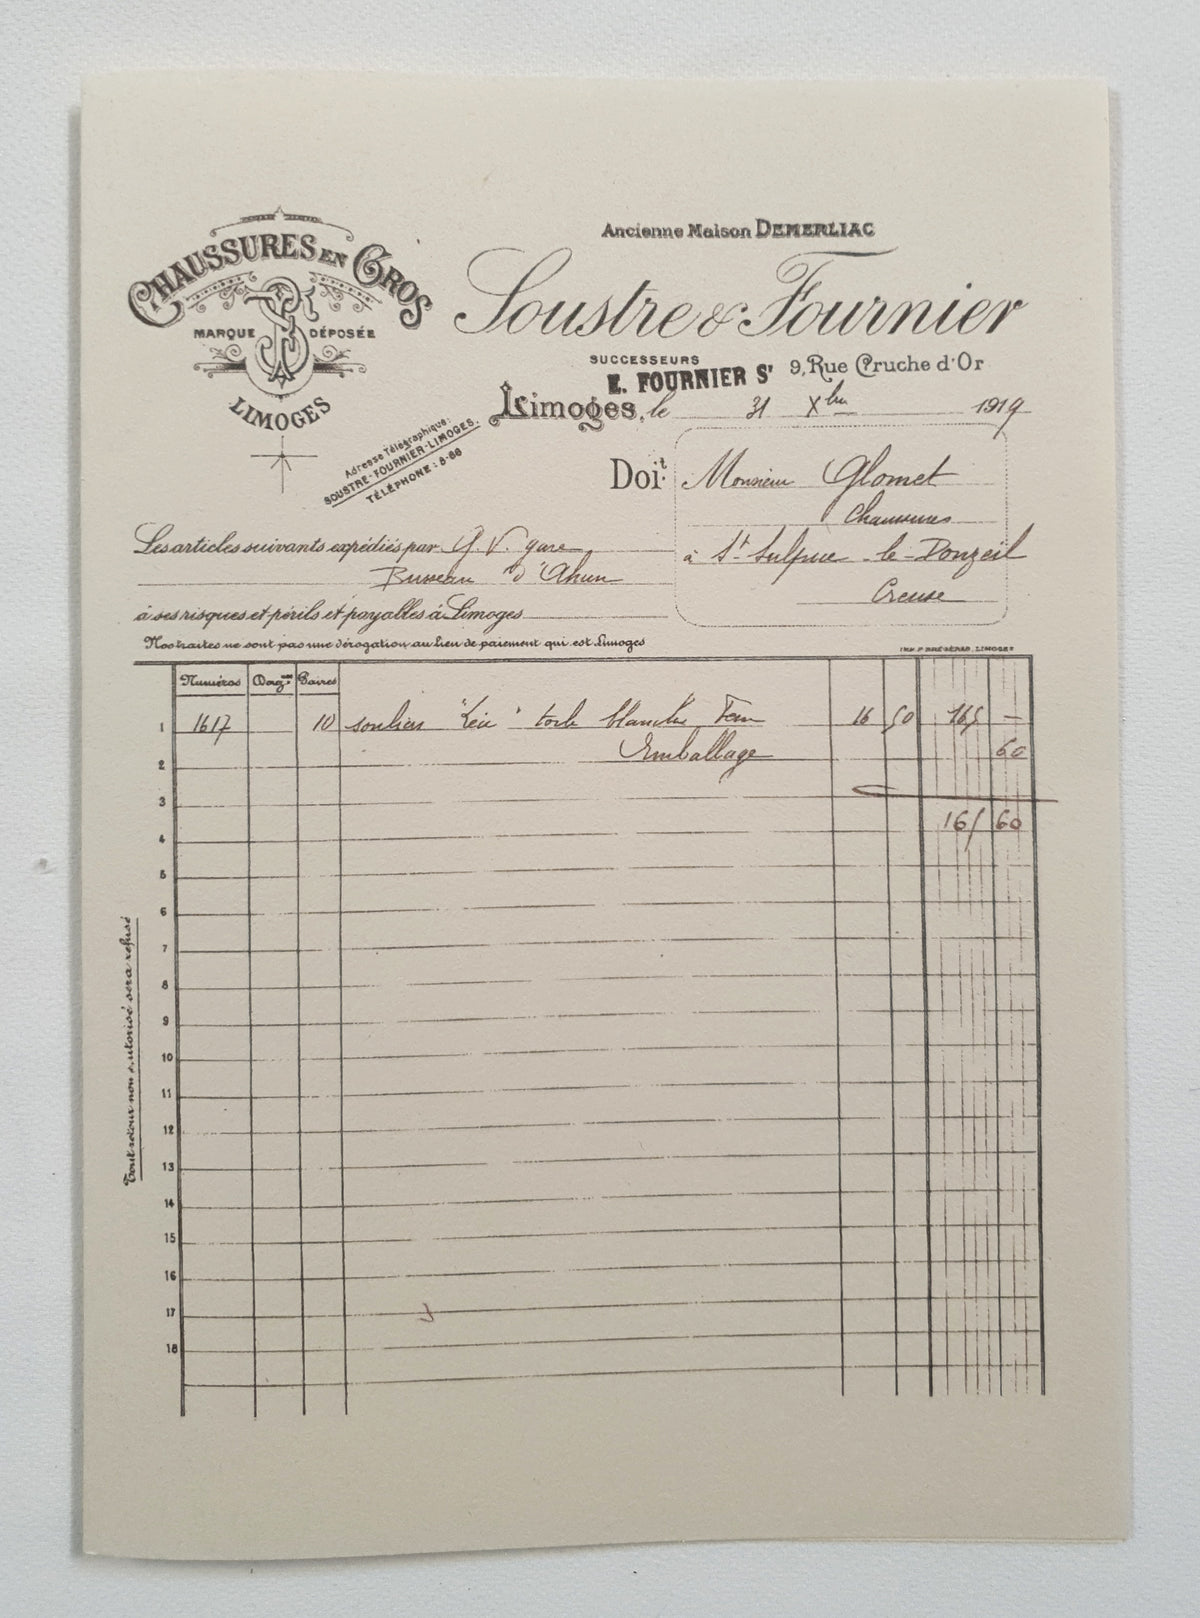 CHAUSSURES EN GROS
MARQUE DÉPOSÉE
LIMOGES
Ancienne Maison DEMERLIAC
Soustre & Fournier
SUCCESSEURS
E. FOURNIER Sr 9, Rue Cruche d'Or
Limoges, le 31 Xbre 1919
Adresse Télégraphique:
SOUSTRE-FOURNIER-LIMOGES.
TÉLÉPHONE: 8-88
Doit Monsieur Glomet
Chaussures
à St Sulpice le-Donzeil
Creuse
Les articles suivants expédiés par G.V. gare
Busseau d'Ahun
à ses risques et périls et payables à Limoges
Nos traites ne sont pas une dérogation au lieu de paiement qui est Limoges
IMP. P. BRÉGÉRAS, LIMOGES
Numéros Douz.nes Paires
1 1617 10 souliers toile blanche Fem 16 50 165 —
2 Emballage 60
3
4 165 60
5
6
7
8
9
10
11
12
13
14
15
16
17
18
Tout retour non autorisé sera refusé